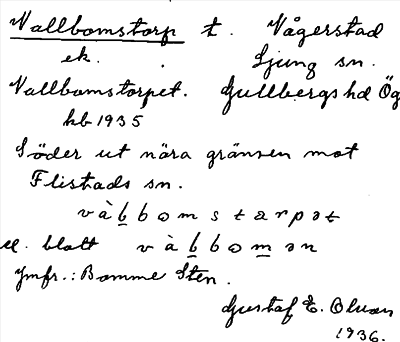 Vallbomstorp t. Vågerstad
ek. Ljung sn.
Vallbomstorpet. Gullbergs hd Ög
kb 1935
Söder ut nära gränsen mot
Flistads sn.
v à b b o m s t ə r p ə t
el. blott v à b b o m ə n
Jmfr.: Bomme Sten.
Gustaf E. Olson
1936.